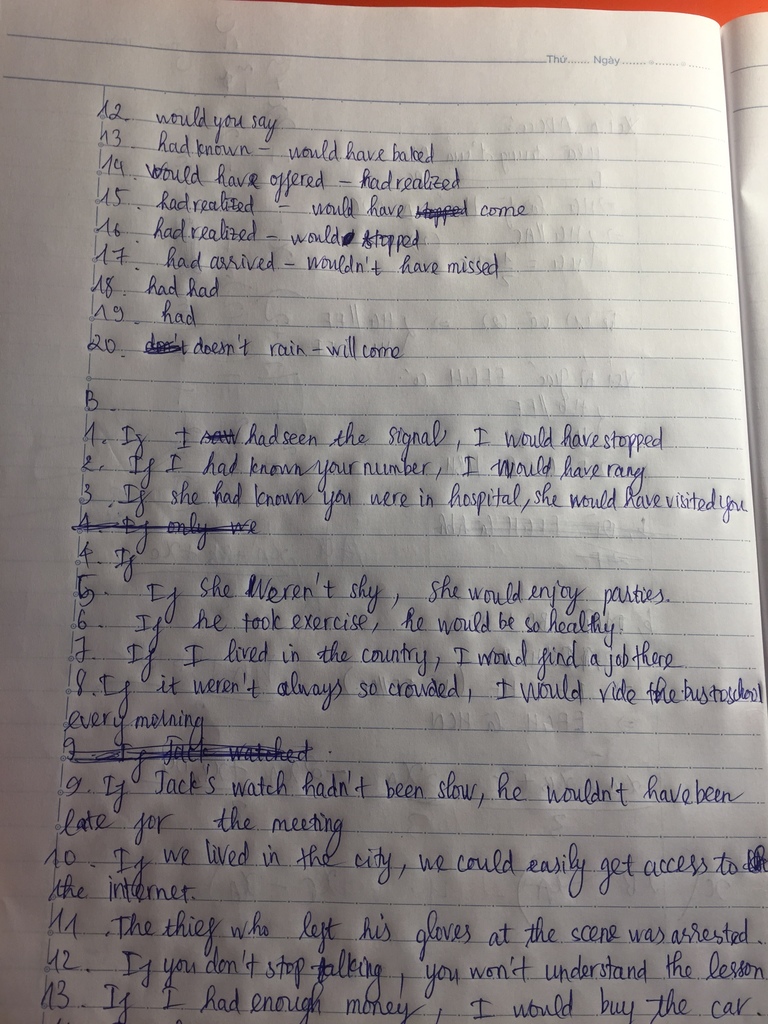 Thứ....... Ngày.......
12. would you say
13. had known - would have baked
14. would have offered - had realized
15. had realized - would have stopped come
16. had realized - would stopped
17. had arrived - wouldn't have missed
18. had had
19. had
20. don't doesn't rain - will come
B.
1. If I saw had seen the signal, I would have stopped
2. If I had known your number, I would have rang
3. If she had known you were in hospital, she would have visited you
4. If only we
4. If
5. If she weren't shy, she would enjoy parties.
6. If he took exercise, he would be so healthy.
7. If I lived in the country, I woud find a job there
8. If it weren't always so crowded, I would ride the bus to school
every morning
9. If Jack watched.
9. If Jack's watch hadn't been slow, he wouldn't have been
late for the meeting
10. If we lived in the city, we could easily get access to
the internet.
11. The thief who left his gloves at the scene was arrested.
12. If you don't stop talking, you won't understand the lesson
13. If I had enough money, I would buy the car.